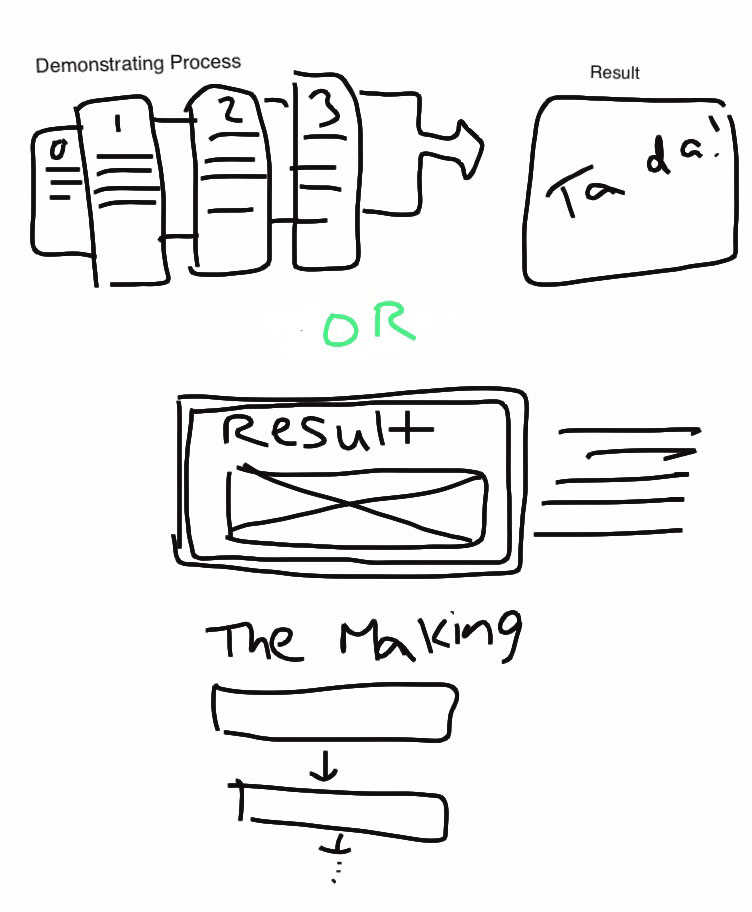 Demonstrating Process
Result
0
1
2
3
Ta da!
OR
Result
The Making